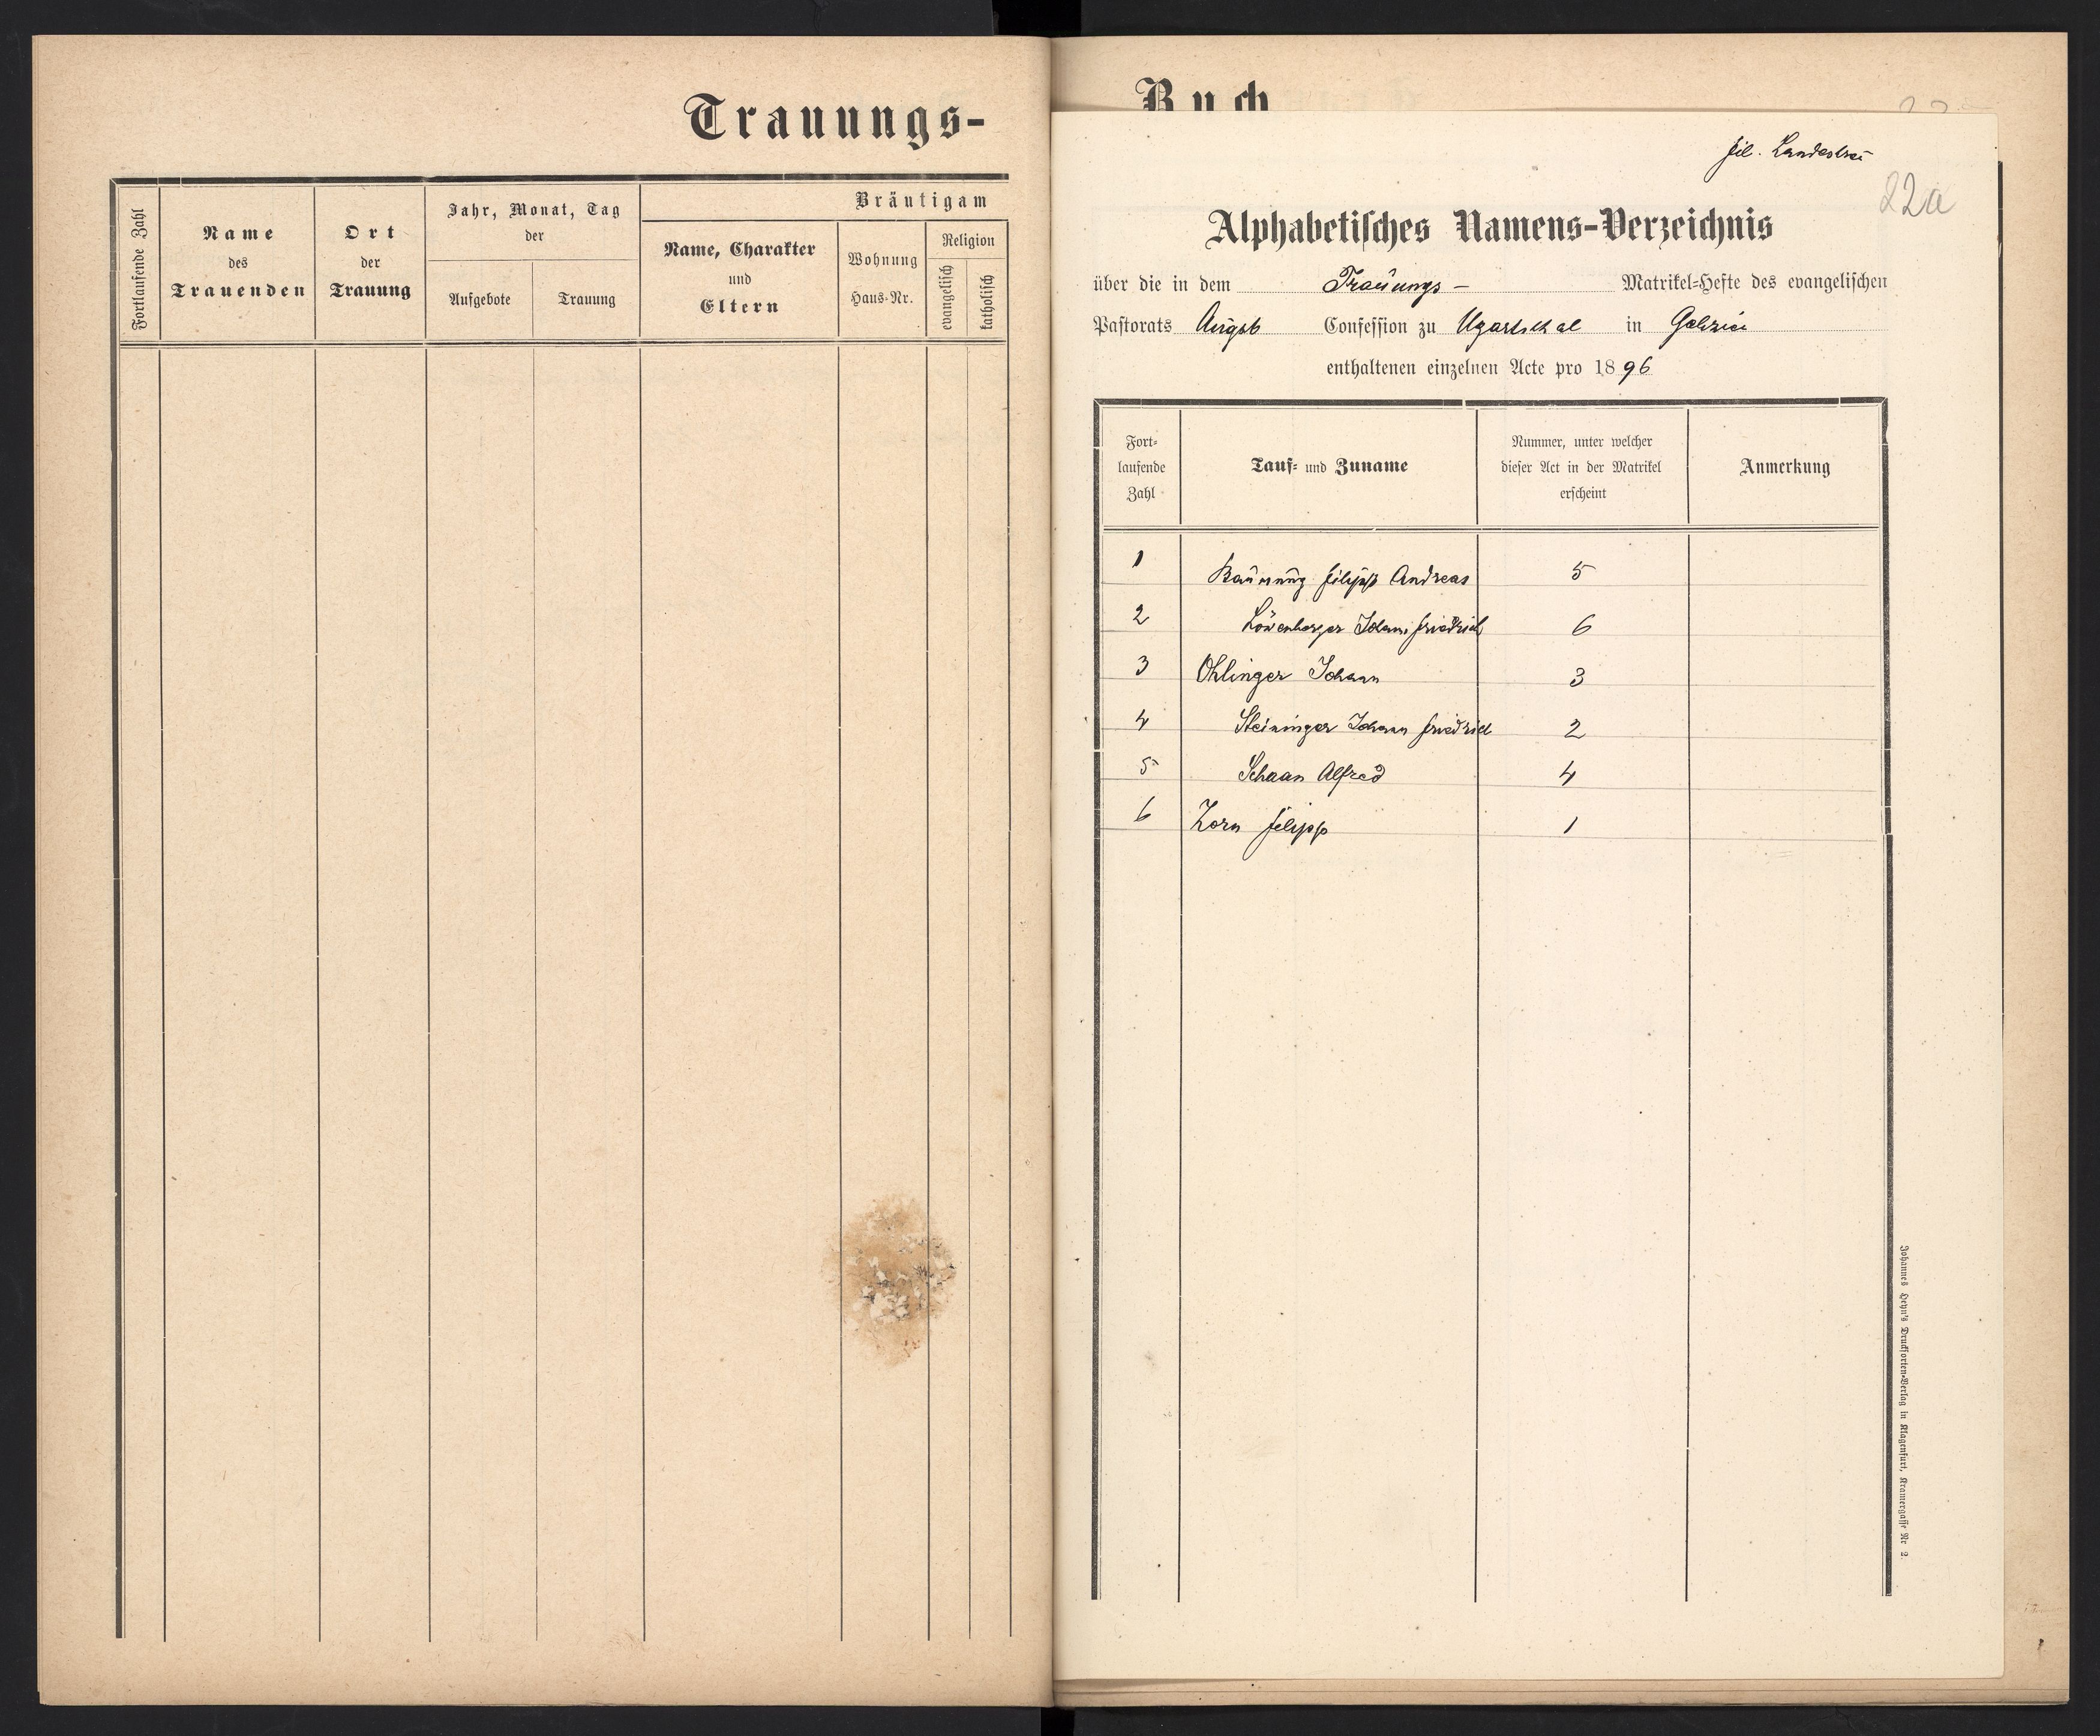 Trauungs-
Fortlaufende Zahl
Name
des
Trauenden
Ort
der
Trauung
Jahr, Monat, Tag
der
Aufgebote
Trauung
Bräutigam
Name, Charakter
und
Eltern
Wohnung
Haus-Nr.
Religion
evangelisch
katholisch
Buch
fil. Landestreu
22a
Alphabetisches Namens-Verzeichnis
über die in dem Trauungs- Matrikel-Hefte des evangelischen
Pastorats Augsb Confession zu Ugartsthal in Galizien
enthaltenen einzelnen Acte pro 1896
Fort-
laufende
Zahl
Tauf- und Zuname
Nummer, unter welcher
dieser Act in der Matrikel
erscheint
Anmerkung
1 Filipp Andreas 5
2 Löwenberger Johann Friedrich 6
3 Ohlinger Johann 3
4 Steininger Johann Friedrich 2
5 Schaan Alfred 4
6 Zorn Filipp 1
Johannes Heyn's Drucksorten-Verlag in Klagenfurt, Kramergasse Nr 2.